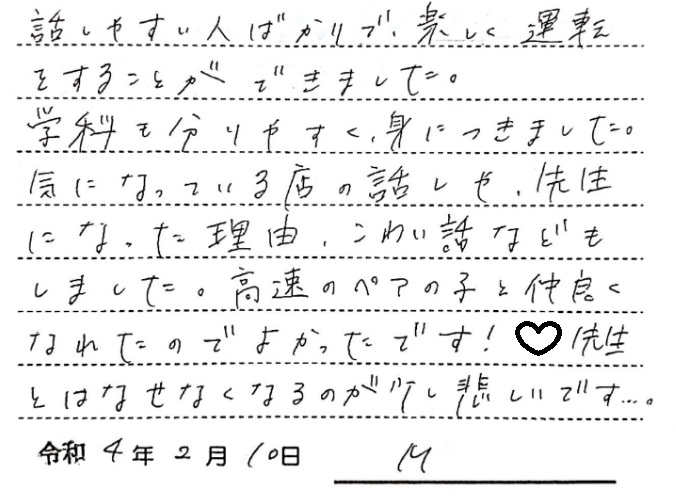 話しやすい人ばかりで、楽しく運転
をすることができました。
学科も分りやすく、身につきました。
気になっている店の話しや、先生
になった理由、こわい話なども
しました。高速のペアの子と仲良く
なれたのでよかったです!♡先生
とはなせなくなるのが少し悲しいです…。
令和4年2月10日